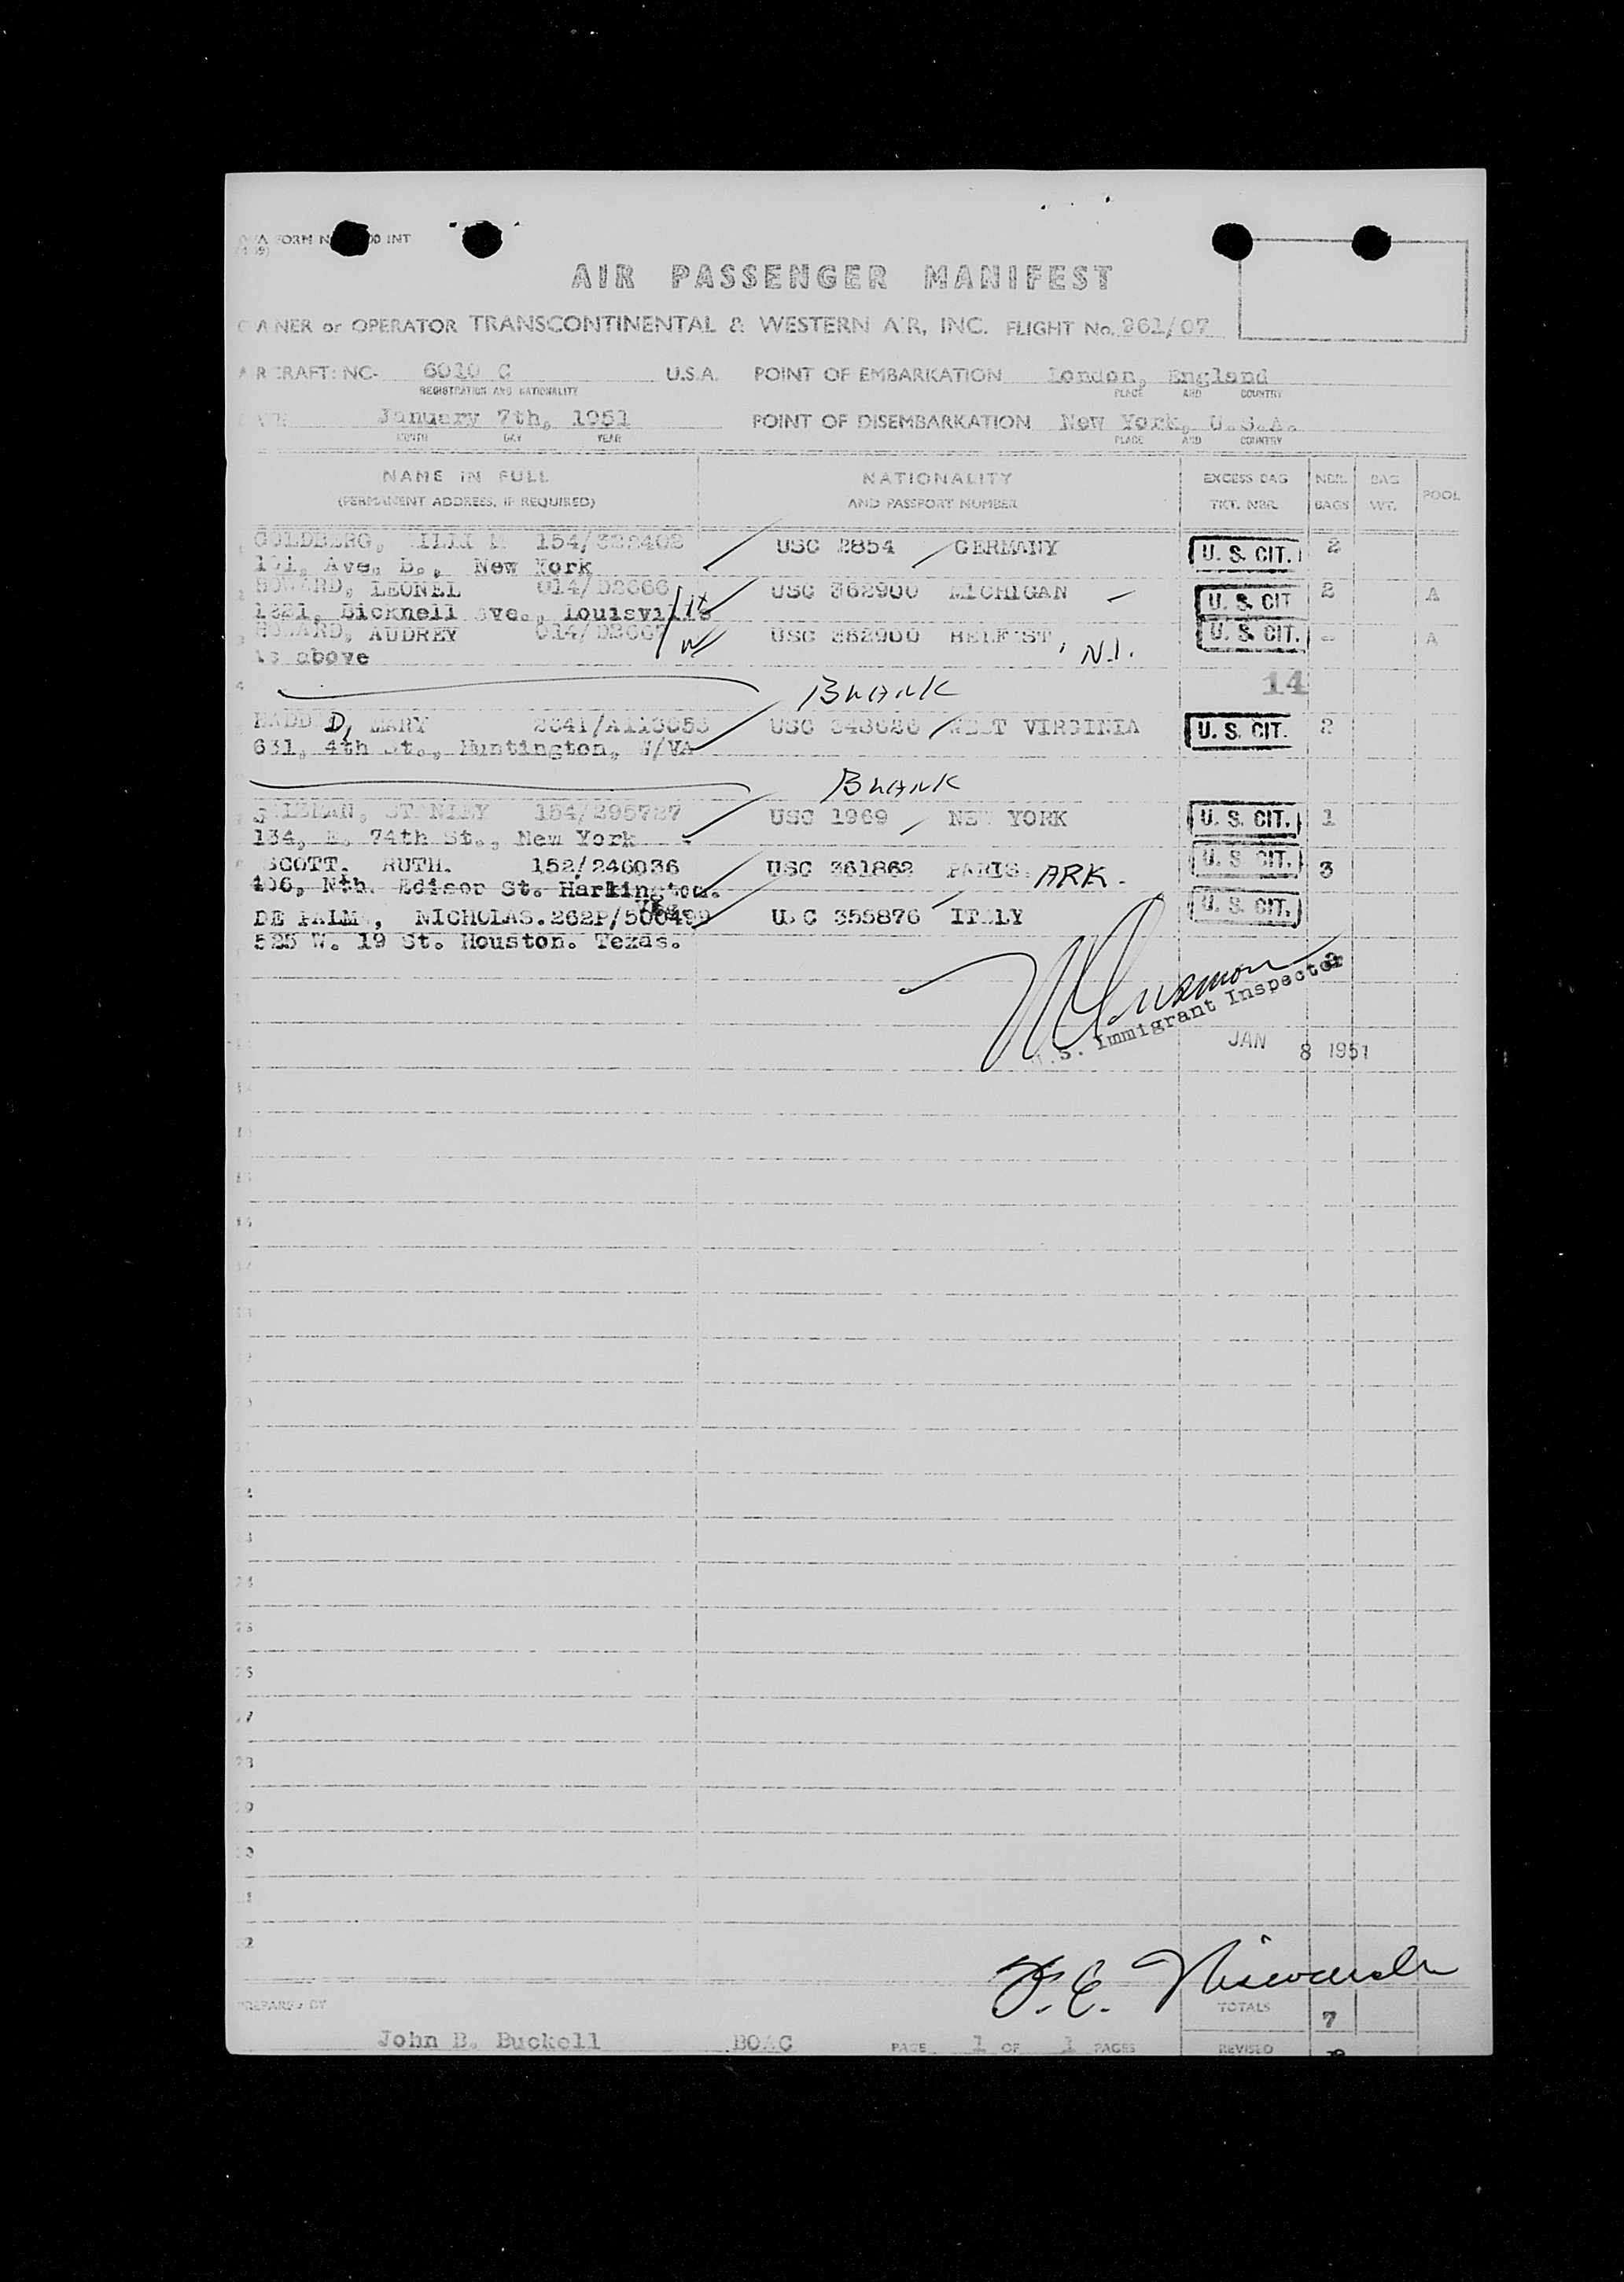 FORM 00 INT
AIR PASSENGER MANIFEST
OWNER or OPERATOR TRANSCONTINENTAL & WESTERN AIR, INC. FLIGHT No. 961/07
AIRCRAFT: NC- 6010 C U.S.A. POINT OF EMBARKATION London, England
REGISTRATION AND NATIONALITY PLACE AND COUNTRY
DATE January 7th, 1951 POINT OF DISEMBARKATION New York, U.S.A.
MONTH DAY YEAR PLACE AND COUNTRY
NAME IN FULL NATIONALITY EXCESS BAG NBR. BAG
(PERMANENT ADDRESS, IF REQUIRED) AND PASSPORT NUMBER TKT. NBR. BAGS WT. POOL
GOLDBERG, 154/322402 USC 2854 GERMANY U. S. CIT. 2
101, Ave. B., New York
HOWARD, LEONEL 014/D2666 USC 362900 MICHIGAN U. S. CIT 2 A
1221, Bicknell Ave., Louisville
HOWARD, AUDREY 014/D2667 USC 362900 BELFAST, N.I. U. S. CIT. - A
As above
4 BLANK 14
D, MARY 2241/A113653 USC 343626 WEST VIRGINIA U. S. CIT. 2
631, 4th St., Huntington, W/VA
BLANK
STANLEY 154/295727 USC 1969 NEW YORK U. S. CIT. 1
134, E. 74th St., New York
SCOTT. RUTH. 152/246036 USC 361862 PARIS. ARK. U. S. CIT. 3
406, Nth. Edison St. Harlington.
DE PALMA, NICHOLAS. 262P/500499 USC 355876 ITALY U. S. CIT.
525 W. 19 St. Houston. Texas.
U.S. Immigrant Inspector
JAN 8 1951
PREPARED BY TOTALS 7
John B. Buckell BOAC PAGE 1 OF 1 PAGES REVISED